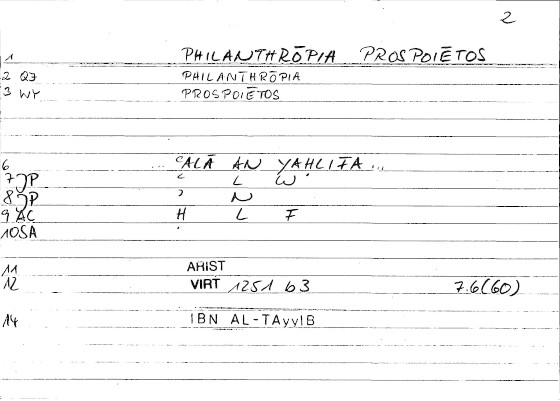 2
1 PHILANTHRŌPIA PROSPOIĒTOS
2 QJ PHILANTHRŌPIA
3 WY PROSPOIĒTOS
6 ... ʿALĀ AN YAHLIFA ...
7 JP ʿ L W
8 JP ʾ N
9 AC H L F
10 SA
11 ARIST
12 VIRT 1251 b3 7.6(60)
14 IBN AL-TAyyIB